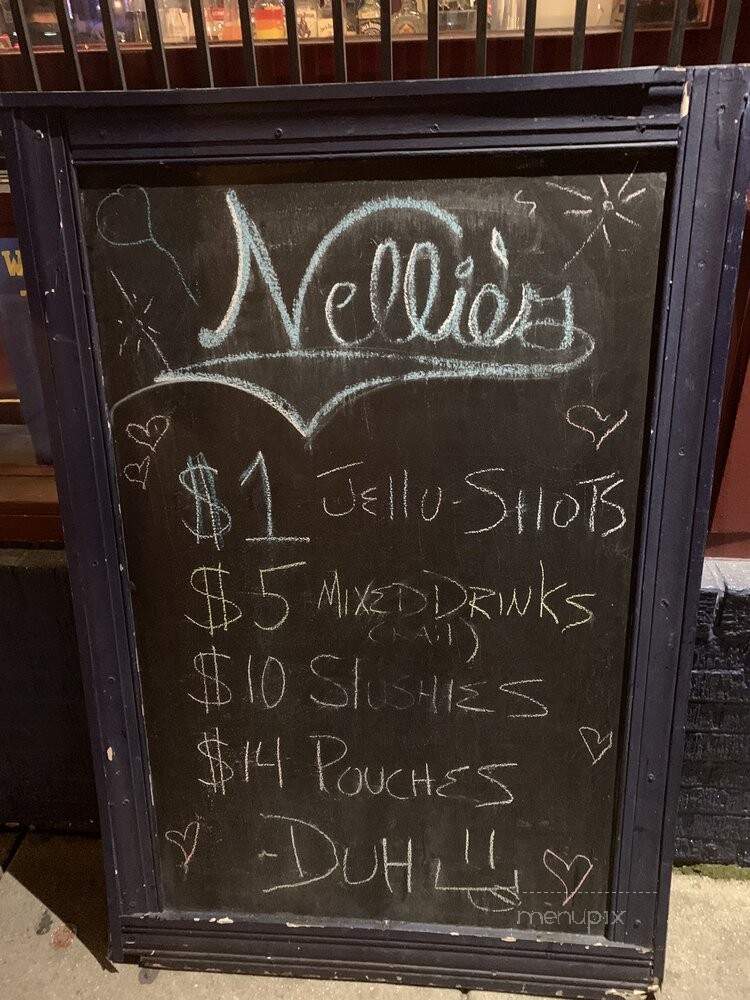 Nellie's
$1 Jello-Shots
$5 Mixed Drinks
$10 Slushies
$14 Pouches
-Duh
menupix